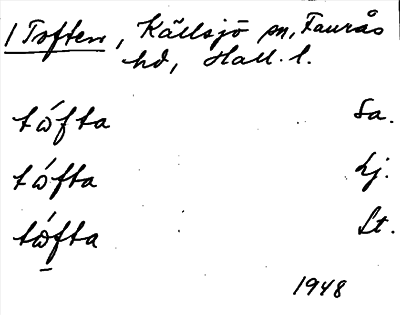 1 Toften, Källsjö sn, Faurås
hd, Hall. l.
tófta Sa.
tófta Lj.
tófta Lt.
1948